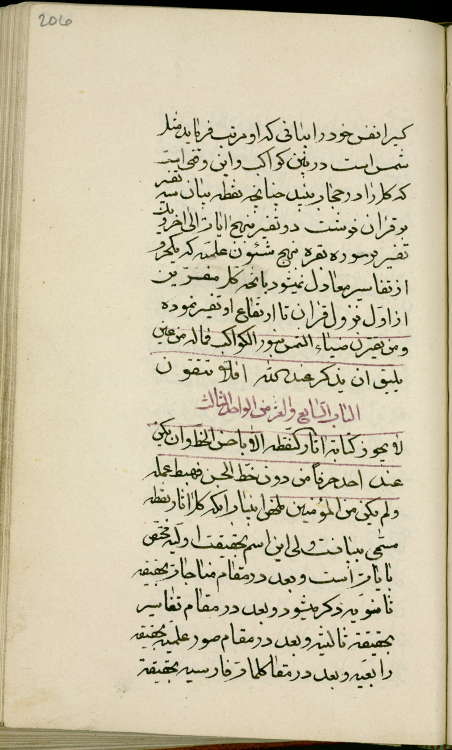 206
كيرا نفس خود را بياناتى كه او مرتب فرمايد مثل
شمس است در بين كواكب و اين وقتى است
كه كل را در حجاز بيند چنانچه نقطه بيان سه تفسير
بر قرآن نوشت دو تفسير بنهج آيات الى آخر و يك
تفسير بر سوره بقره بنهج شئون علميه كه يكحرف
از تفاسير معادل نميشود بآنچه كل مفسرين
از اول نزول قرآن تا ارتفاع او تفسير نموده
و من يقترن ضياء الشمس بنور الكواكب فانه من عين
يليق ان يذكر عند الله افلا تتقون
الباب السابع و العشر من الواحد الثالث
لا يجوز كتابة آثار النقطه الا باحسن الخط و ان يكن
عند احد حرفا من دون خط الحسن فيحبط عمله
ولم يكن من المؤمنين ملخص اينباب آنكه كل آثار نقطه
مسمى ببيانست ولى اين اسم بحقيقت اوليه مختص
بآيات است و بعد در مقام مناجات بحقيقة
ثانويه ذكر ميشود و بعد در مقام تفاسير
بحقيقة ثالثيه و بعد در مقام صور علميه بحقيقة
رابعيه و بعد در مقام كلمات فارسيه بحقيقة